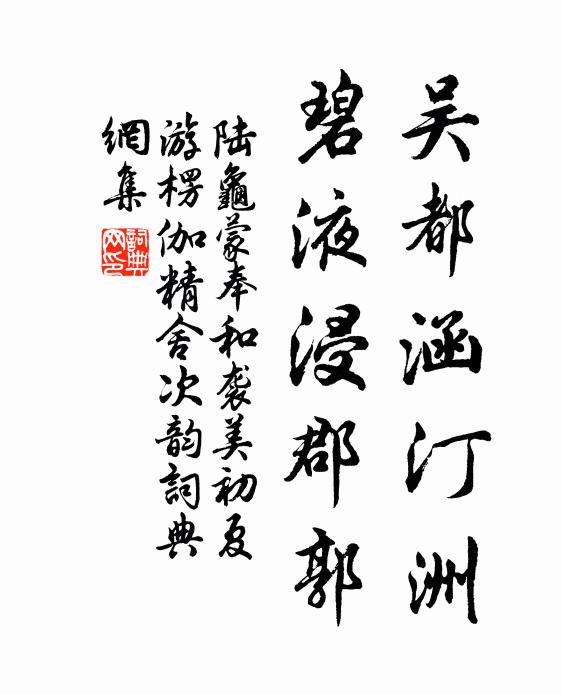 吴都涵汀洲
碧液浸郡郭
陆龜蒙奉和袭美初夏
游楞伽精舍次韵詞典
網集
詞典網印